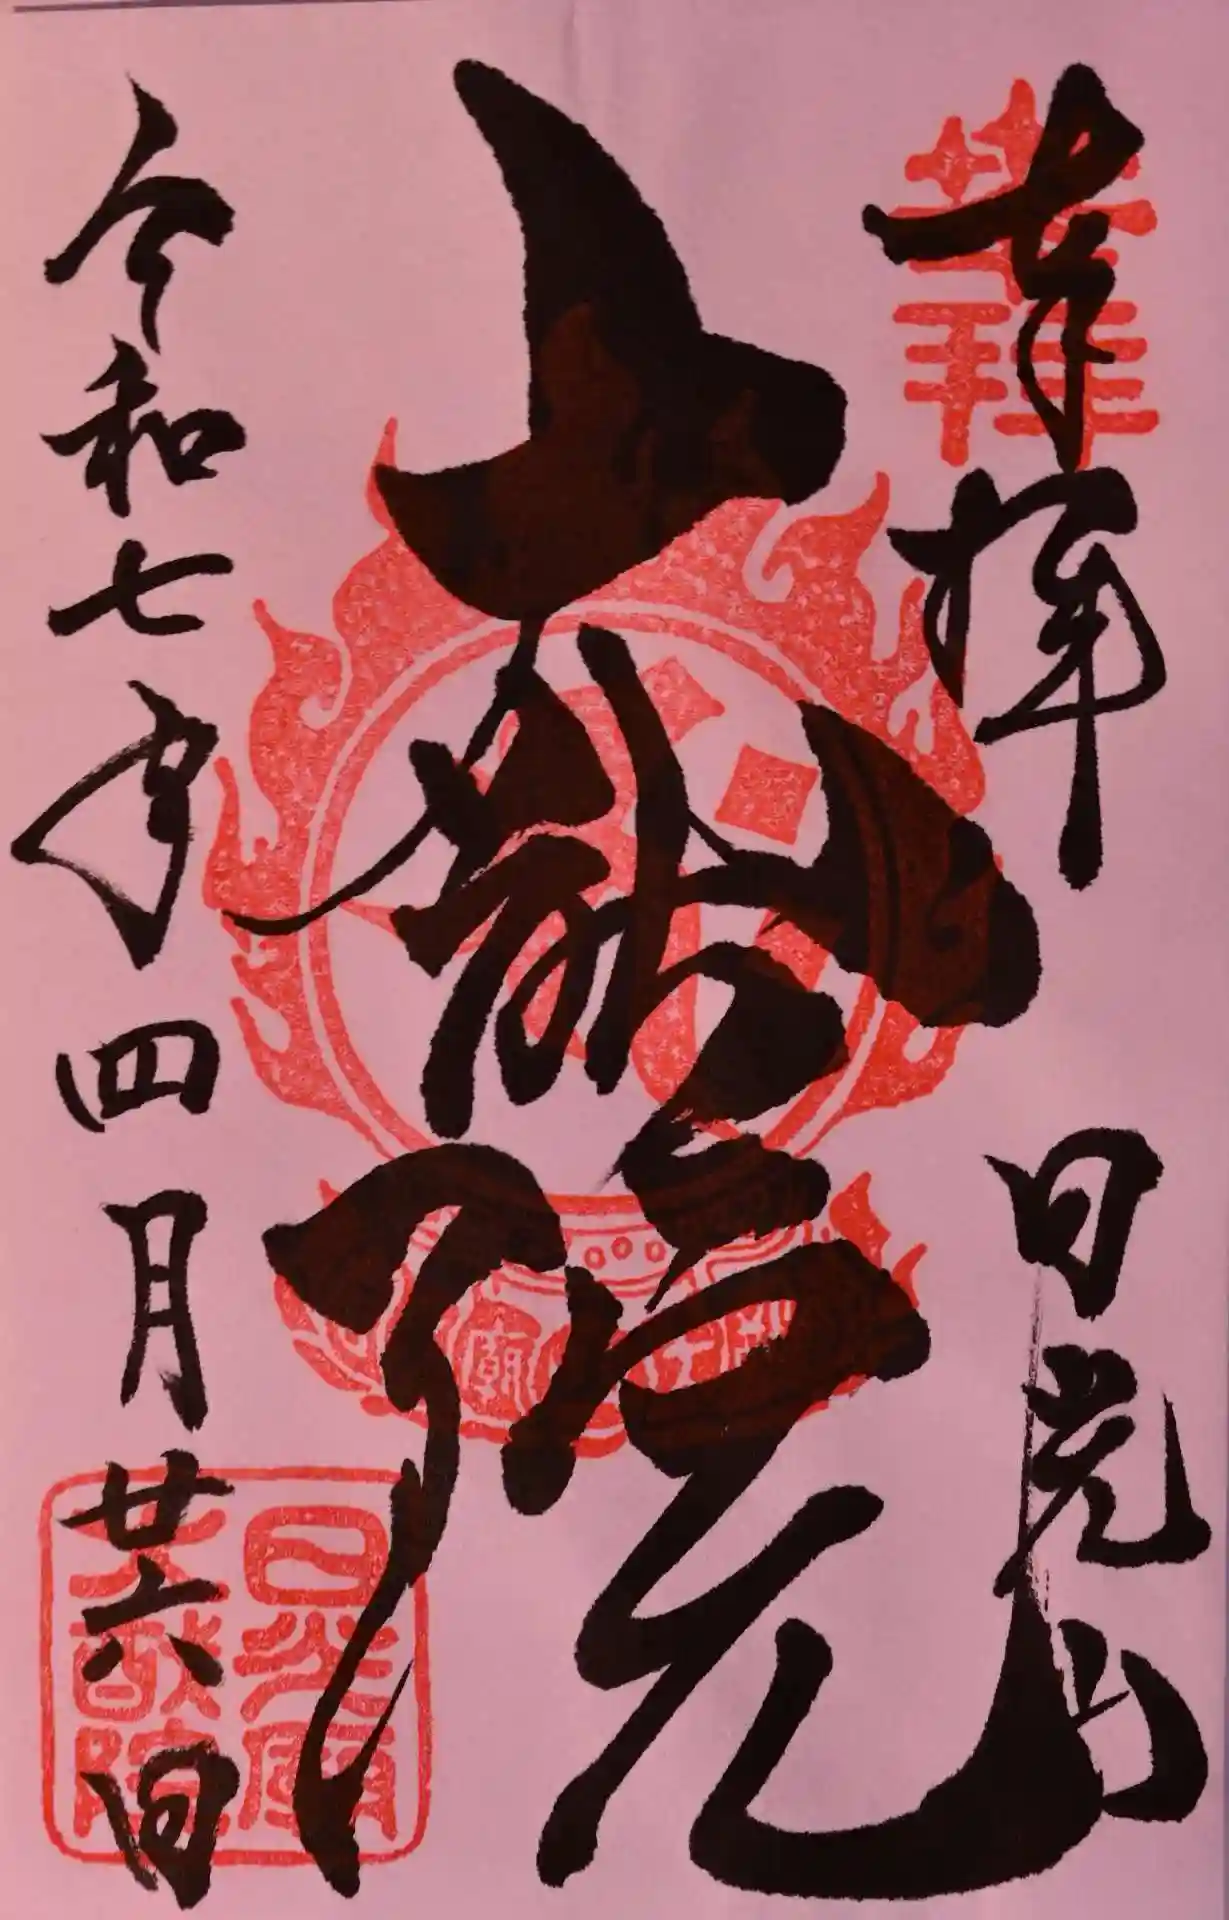 奉拝
日光山
大猷院
令和七年四月廿六日
奉拝
日光廟
大猷院